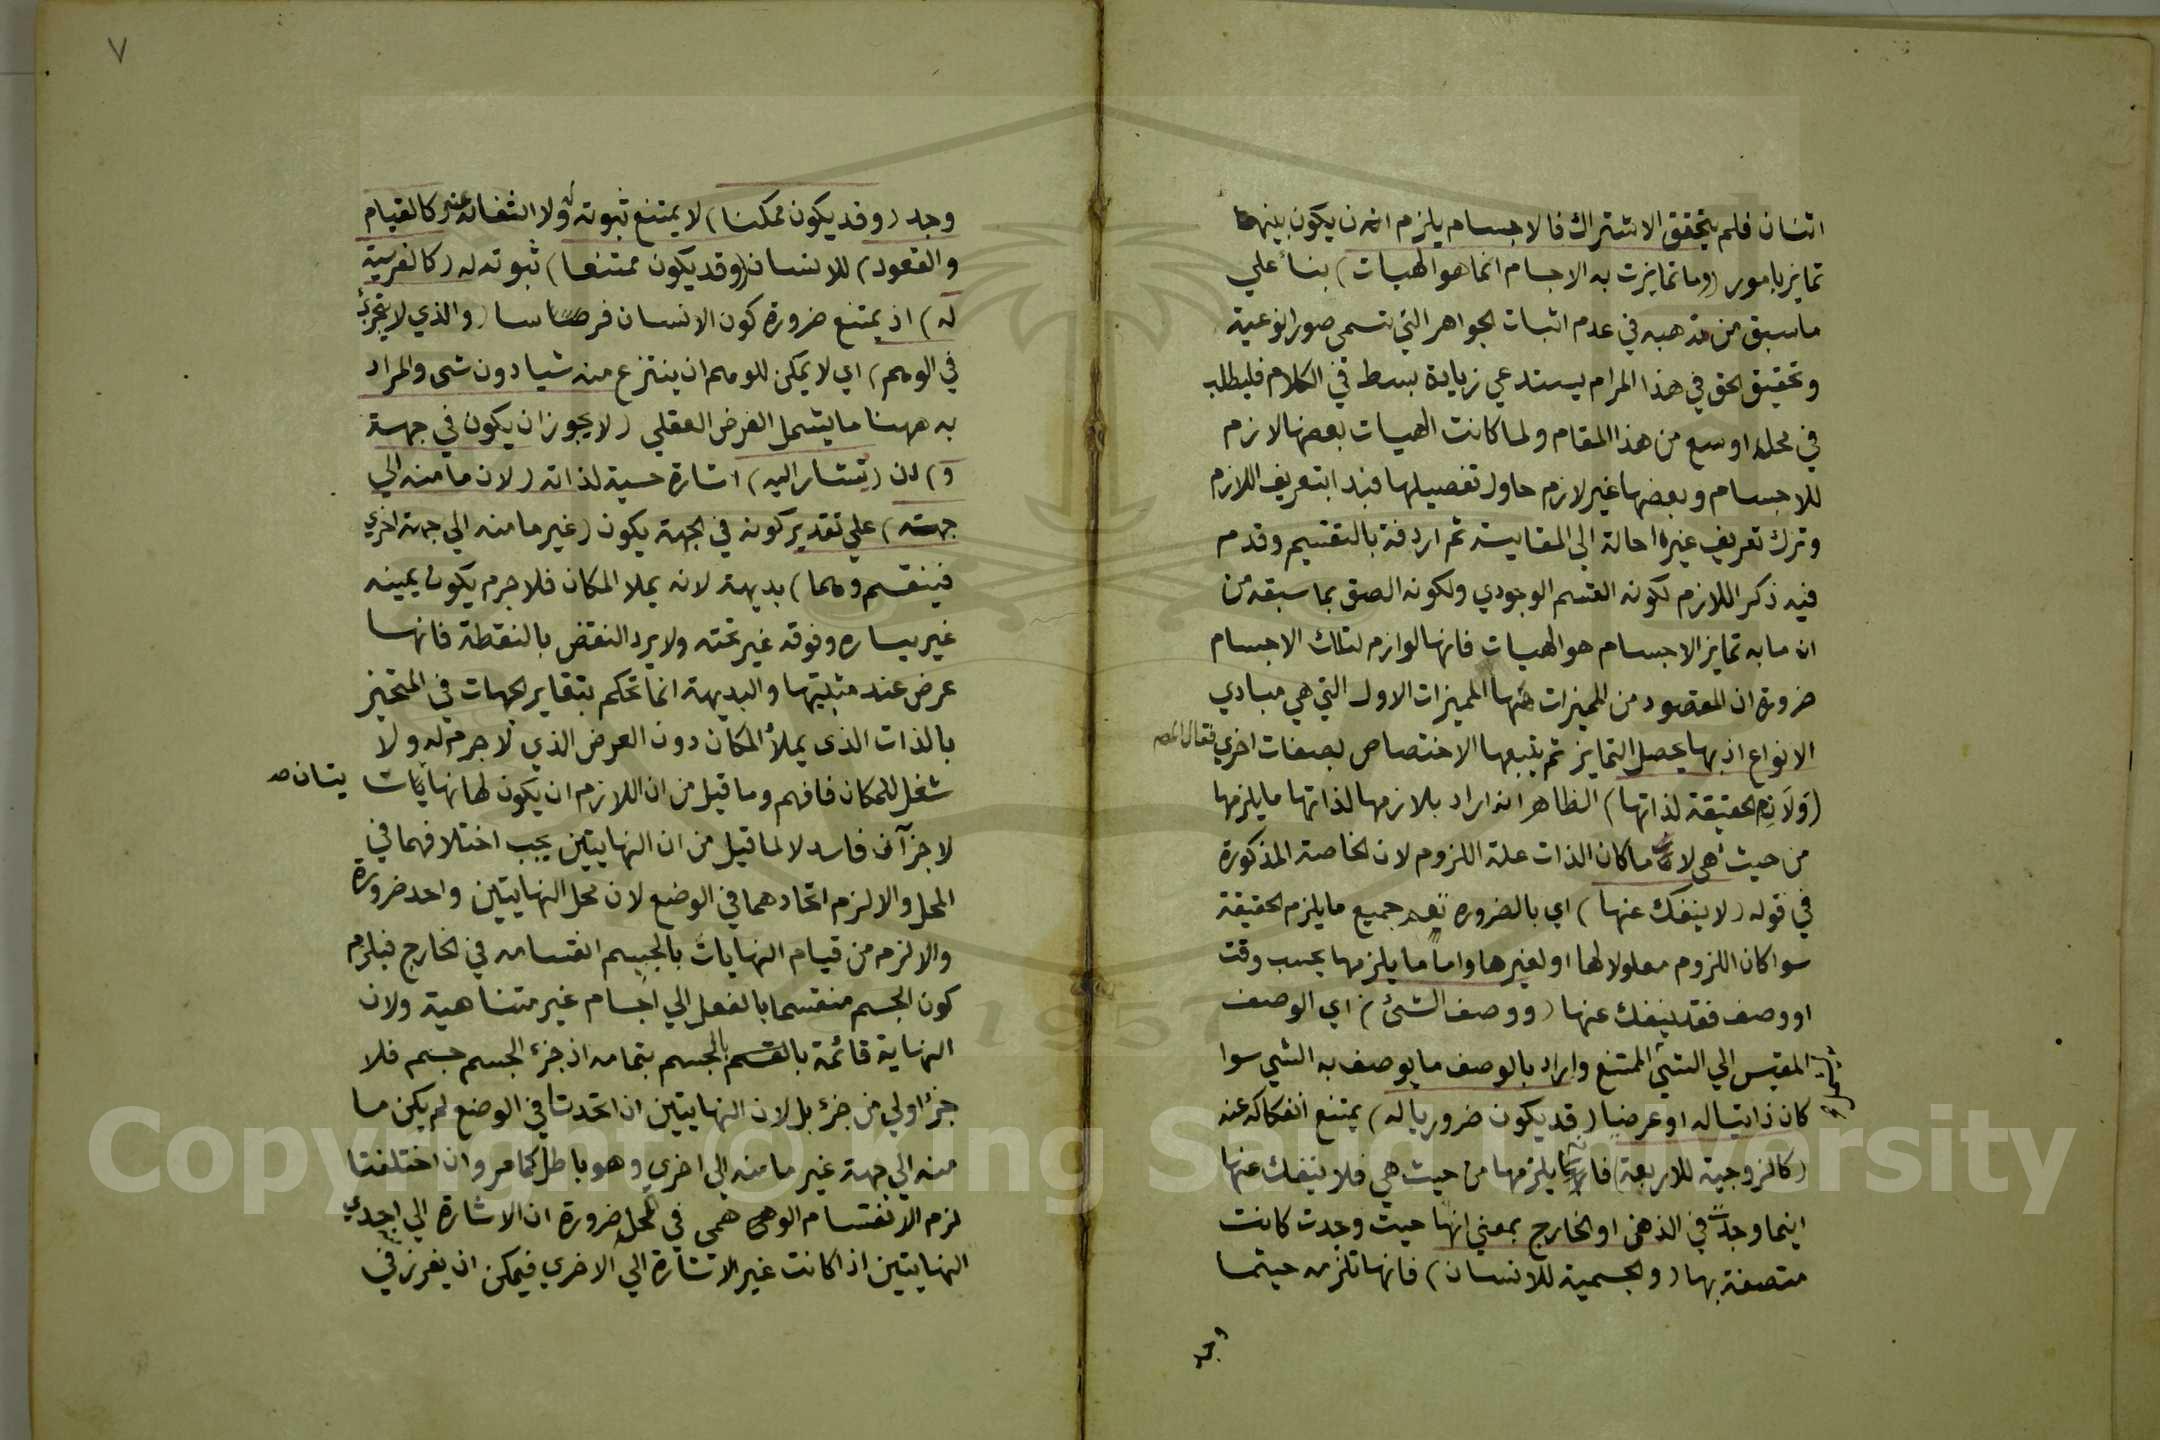 اثنان فلم يتحقق الاشتراك فالاجسام يلزم ان يكون بينها
تمايز بامور (وما تمايزت به الاجسام انما هو الهيات) بناء علي
ما سبق من مذهبه في عدم اثبات الجواهر التي تسمى صورا نوعية
وتحقيق الحق في هذا المرام يستدعي زيادة بسط في الكلام فليطلب
في محله اوسع من هذا المقام ولما كانت الهيات بعضها لازم
للاجسام وبعضها غير لازم حاول تفصيلها فبدا بتعريف اللازم
وترك تعريف غيره احالة الي المقايسة ثم اردفه بالتقسيم وقدم
فيه ذكر اللازم لكونه القسم الوجودي ولكونه الصق بما سبقه من
ان ما به تمايز الاجسام هو الهيات فانها لوازم لتلك الاجسام
ضرورة ان المقصود من المميزات ههنا المميزات الاول التي هي مبادي
الانواع اذ بها يحصل التمايز ثم يتبعها الاختصاص بصفات اخري فقال المصـ
(ولازم الحقيقة لذاتها) الظاهر انه اراد بلازمها لذاتها ما يلزمها
من حيث هي لا ما كان الذات علة اللزوم لان الخاصة المذكورة
في قوله (لا ينفك عنها) اي بالضرورة تعم جميع ما يلزم الحقيقة
سوا كان اللزوم معلولا لها او لغيرها واما ما يلزمها بحسب وقت
او وصف فقد ينفك عنها (ووصف الشئ) اي الوصف
المقيس الي الشئ الممتنع واراد بالوصف ما يوصف به الشي سوا
كان ذاتيا له او عرضيا (قد يكون ضروريا له) يمتنع انفكاكه عنه
(كالزوجية للاربعة) فانها يلزمها من حيث هي فلا ينفك عنها
اينما وجدت في الذهن او الخارج بمعني انها حيث وجدت كانت
متصفة بها (والجسمية للانسان) فانها تلزمه حيثما
وجد
٧
وجد (وقد يكون ممكنا) لا يمتنع ثبوته له ولا انتفائه عنه كالقيام
والقعود) للانسان (وقد يكون ممتنعا) ثبوته له (كالفرسية
له) اذ يمتنع ضرورة كون الانسان فرسا (والذي لا يتجزئ
في الوهم) اي لا يمكن للوهم ان ينتزع منه شيا دون شي والمراد
به ههنا ما يشمل الفرض العقلي (لا يجوز ان يكون في جهة
و) ان (يشار اليه) اشارة حسية لذاته (لان ما منه الي
جهة) علي تقدير كونه في الجهة يكون (غير ما منه الي جهة اخري
فينقسم وهما) بديهة لانه يملا المكان فلا جرم يكون يمينه
غير يساره وفوقه غير تحته ولا يرد النقض بالنقطة فانها
عرض عند مثبتيها والبديهة انما تحكم بتغاير الجهات في المتحيز
بالذات الذي يملأ المكان دون العرض الذي لا جرم له ولا
شغل للمكان فافهم وما قيل من ان اللازم ان يكون لها نهايات يتان صـ
لا جزآن فاسد لا لما قيل من ان النهايتين يجب اختلافهما في
المحل والا لزم اتحادهما في الوضع لان محل النهايتين واحد ضرورة
والا لزم من قيام النهايات بالجسم انقسامه في الخارج فيلزم
كون الجسم منقسما بالفعل الي اجسام غير متناهية ولان
النهاية قائمة بالقسم بالجسم بتمامه اذ جزء الجسم جسم فلا
جزء اولي من جزء بل لان النهايتين ان اتحدتا في الوضع لم يكن ما
منه الي جهة غير ما منه الي اخري وهو باطل كما مر وان اختلفتا
لزم الانقسام الوهمي في المحل ضرورة ان الاشارة الي احدي
النهايتين اذا كانت غير الاشارة الي الاخري فيمكن ان يفرز في